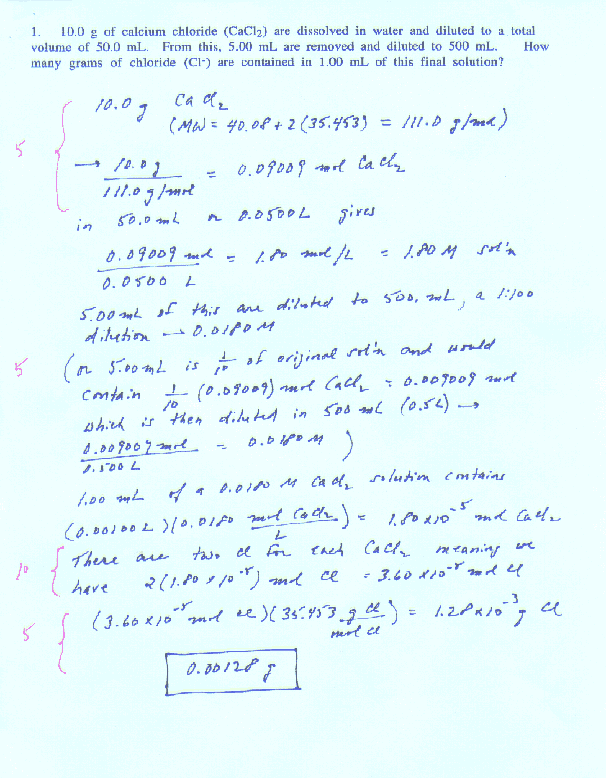 1. 10.0 g of calcium chloride (CaCl2) are dissolved in water and diluted to a total
volume of 50.0 mL. From this, 5.00 mL are removed and diluted to 500 mL. How
many grams of chloride (Cl-) are contained in 1.00 mL of this final solution?
10.0 g CaCl2
(MW = 40.08 + 2(35.453) = 111.0 g/mol)
5
→ 10.0 g = 0.09009 mol CaCl2
111.0 g/mol
in 50.0 mL or 0.0500 L gives
0.09009 mol = 1.80 mol/L = 1.80 M sol'n
0.0500 L
5.00 mL of this are diluted to 500. mL, a 1:100
dilution → 0.0180 M
5
(or 5.00 mL is 1/10 of original sol'n and would
contain 1/10 (0.09009) mol CaCl2 = 0.009009 mol
which is then diluted in 500 mL (0.5L) →
0.009009 mol = 0.0180 M )
0.500 L
1.00 mL of a 0.0180 M CaCl2 solution contains
(0.00100 L)(0.0180 mol CaCl2/L) = 1.80 x10-5 mol CaCl2
There are two Cl for each CaCl2 meaning we
10
have 2(1.80 x 10-5) mol Cl = 3.60 x10-5 mol Cl
5
(3.60 x10-5 mol Cl)(35.453 g Cl/mol Cl) = 1.28 x10-3 g Cl
0.00128 g